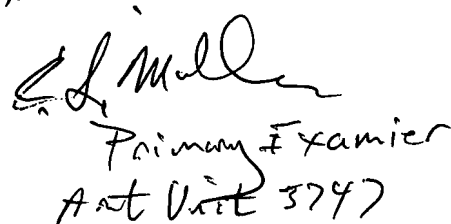 Primary Examier
Art Unit 3747